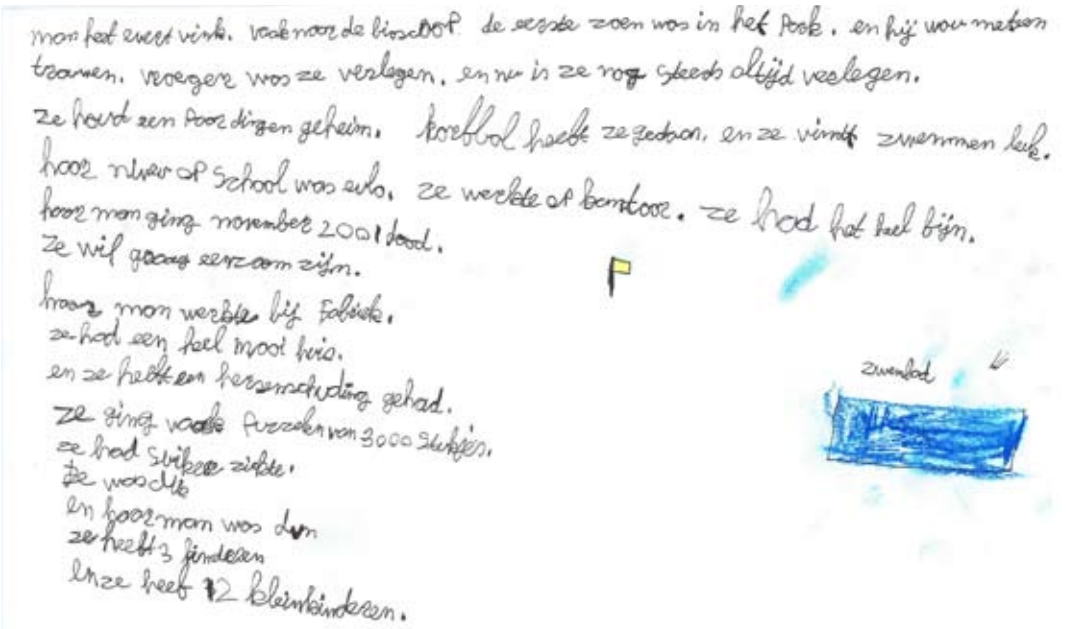 man heet evert vink. vaak naar de bioscoop. de eerste zoen was in het Park. en hij wou meteen
trouwen. vroeger was ze verlegen. en nu is ze nog steeds altijd verlegen.
ze houd een paar dingen geheim. korfbal heeft ze gedaan. en ze vindt zwemmen leuk.
haar niveau op school was evlo. ze werkte op kantoor. ze had het heel fijn.
haar man ging november 2001 dood.
Ze wil graag eenzaam zijn.
haar man werkte bij Fabriek.
ze had een heel mooi huis.
en ze heeft een hersenschuding gehad.
ze ging vaak Puzzelen van 3000 stukjes.
ze had suiker ziekte.
Ze was dik
en haar man was dun
ze heeft 3 kinderen
en ze heef 12 kleinkinderen.
zwembad